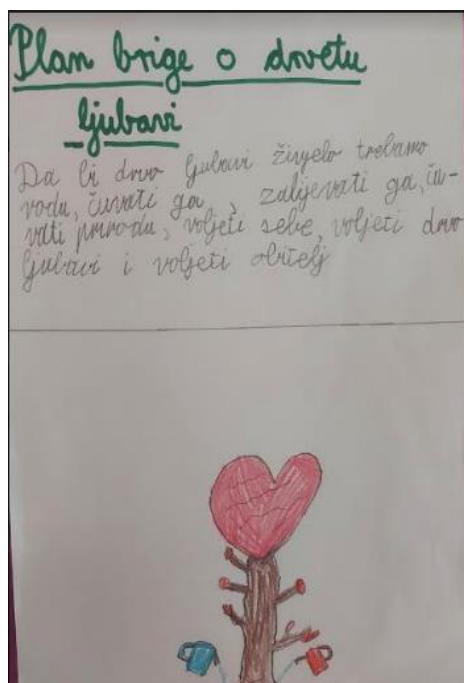 Plan brige o drvetu
ljubavi
Da bi drvo ljubavi živjelo trebamo
vodu, čuvati ga, zalijevati ga, ču-
vati prirodu, voljeti sebe, voljeti drvo
ljubavi i voljeti obitelj